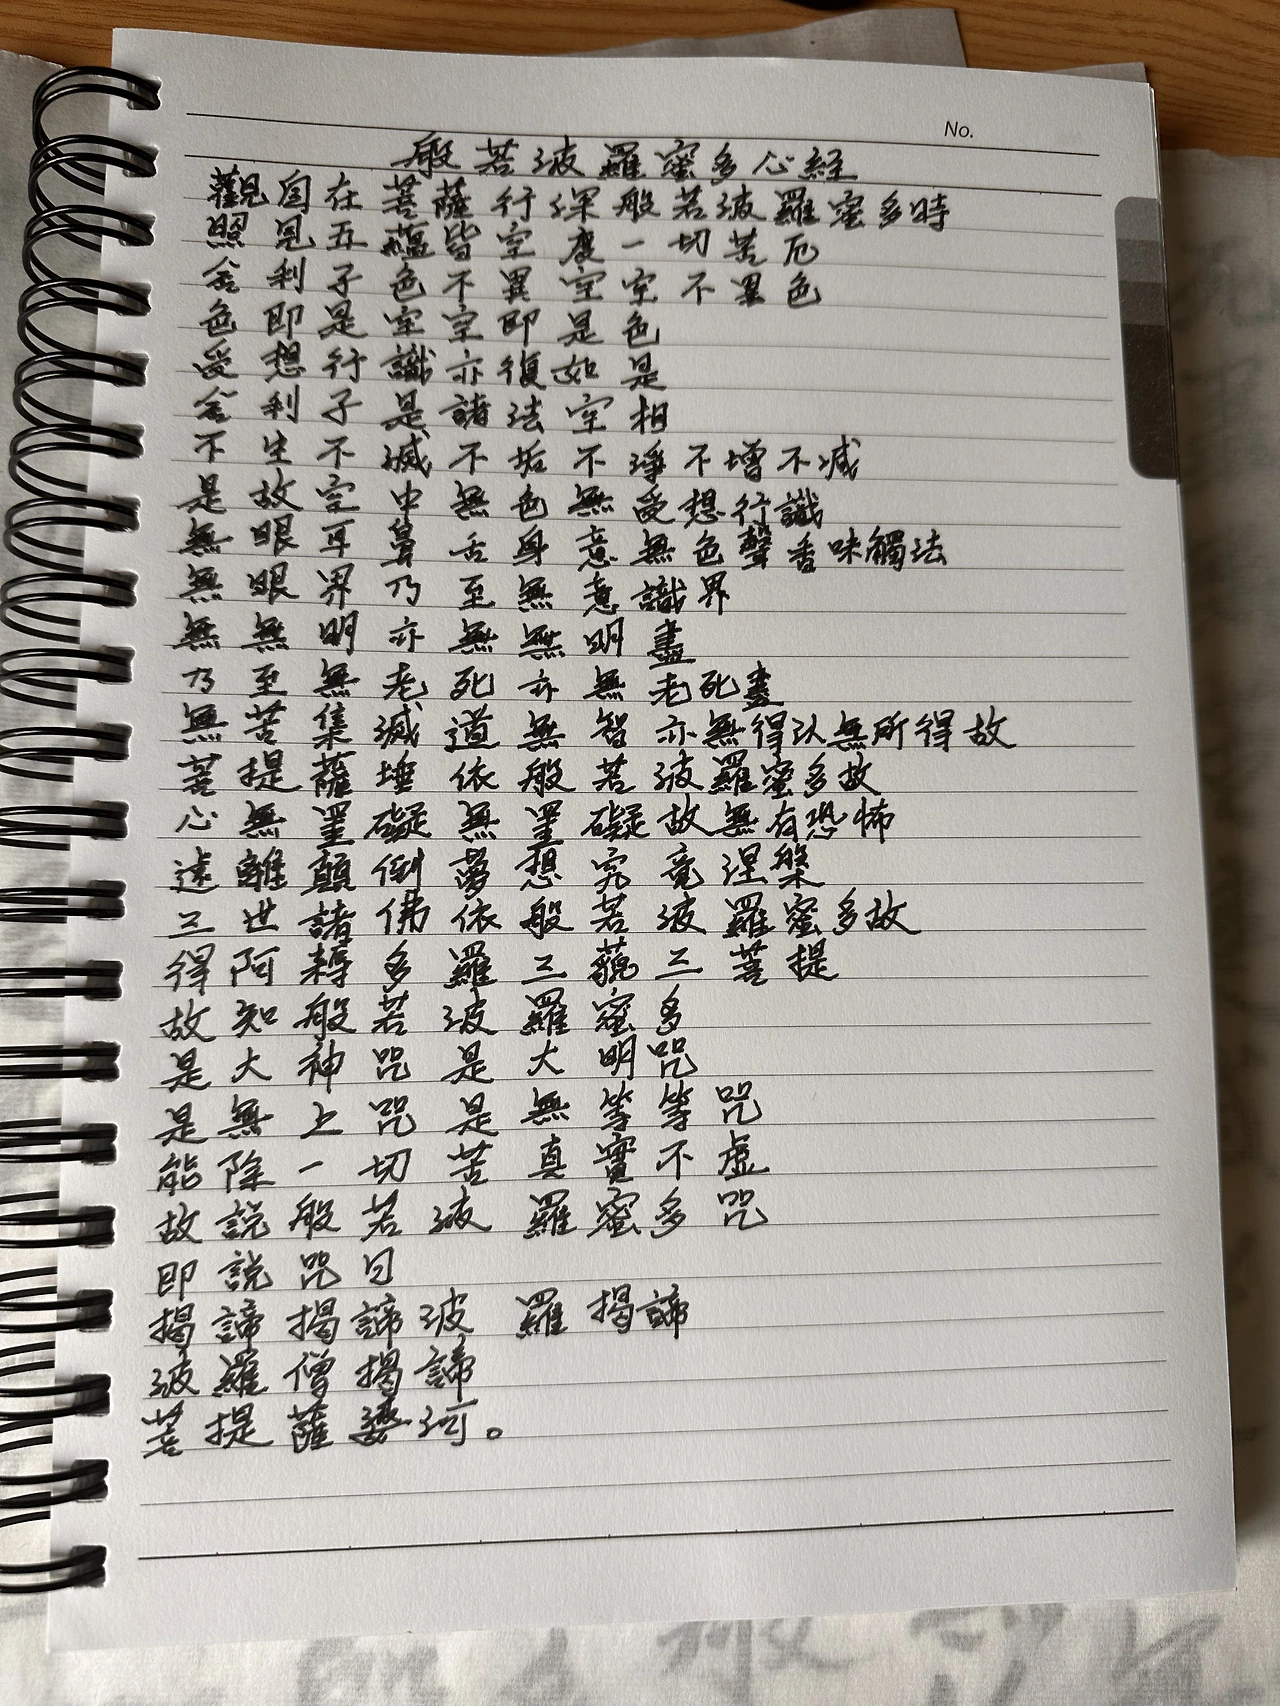 No.
般若波羅蜜多心經
觀自在菩薩行深般若波羅蜜多時
照見五蘊皆空度一切苦厄
舍利子色不異空空不異色
色即是空空即是色
受想行識亦復如是
舍利子是諸法空相
不生不滅不垢不淨不增不减
是故空中無色無受想行識
無眼耳鼻舌身意無色聲香味觸法
無眼界乃至無意識界
無無明亦無無明盡
乃至無老死亦無老死盡
無苦集滅道無智亦無得以無所得故
菩提薩埵依般若波羅蜜多故
心無罣礙無罣礙故無有恐怖
遠離顛倒夢想究竟涅槃
三世諸佛依般若波羅蜜多故
得阿耨多羅三藐三菩提
故知般若波羅蜜多
是大神咒是大明咒
是無上咒是無等等咒
能除一切苦真實不虛
故説般若波羅蜜多咒
即説咒曰
揭諦揭諦波羅揭諦
波羅僧揭諦
菩提薩婆訶。